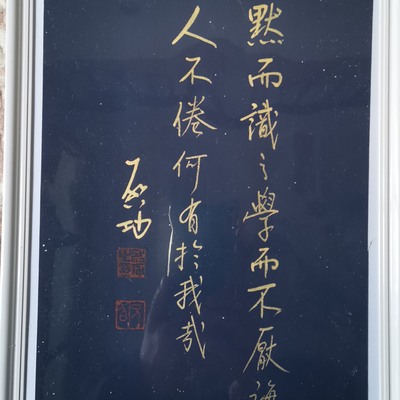 默而識之學而不厭誨
人不倦何有於我哉
啟功